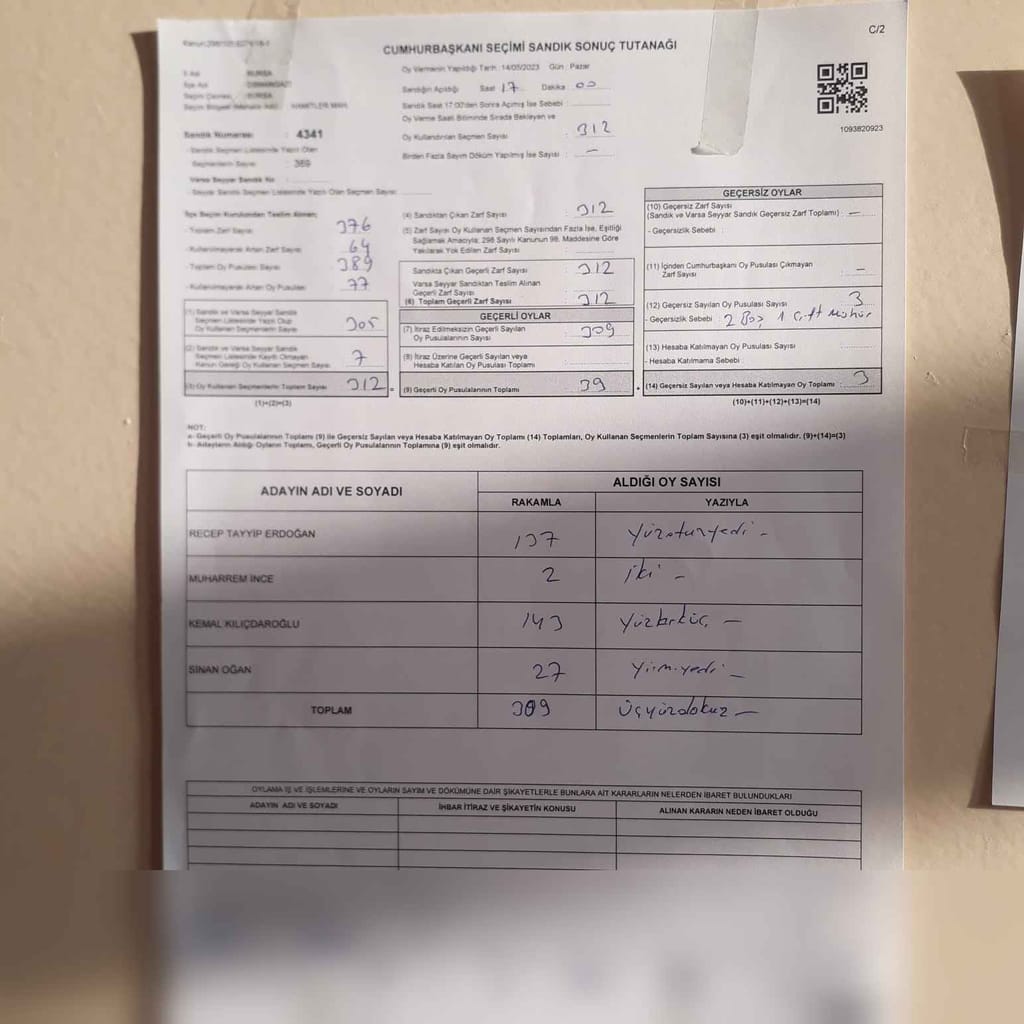 C/2
CUMHURBAŞKANI SEÇİMİ SANDIK SONUÇ TUTANAĞI
Oy Vermenin Yapıldığı Tarih : 14/05/2023 Gün : Pazar
Sandığın Açıldığı Saat 17 Dakika 00
Sandık Saat 17:00'den Sonra Açılmış İse Sebebi :
Oy Verme Saati Bitiminde Sırada Bekleyen ve
Oy Kullandırılan Seçmen Sayısı : 312
Birden Fazla Sayım Döküm Yapılmış İse Sayısı : —
1093820923
İl Adı : BURSA
İlçe Adı : OSMANGAZİ
Seçim Çevresi : BURSA
Sandık Numarası : 4341
- Sandık Seçmen Listesinde Yazılı Olan
Seçmenlerin Sayısı : 389
Varsa Seyyar Sandık No :
- Seyyar Sandık Seçmen Listesinde Yazılı Olan Seçmen Sayısı :
İlçe Seçim Kurulundan Teslim Alınan;
- Toplam Zarf Sayısı : 376
- Kullanılmayarak Artan Zarf Sayısı : 64
- Toplam Oy Pusulası Sayısı : 389
- Kullanılmayarak Artan Oy Pusulası : 77
(1) Sandık ve Varsa Seyyar Sandık
Seçmen Listesinde Yazılı Olup
Oy Kullanan Seçmenlerin Sayısı 305
(2) Sandık ve Varsa Seyyar Sandık
Seçmen Listesinde Kayıtlı Olmayan
Kanun Gereği Oy Kullanan Seçmen Sayısı 7
(3) Oy Kullanan Seçmenlerin Toplam Sayısı 312 =
(1)+(2)=(3)
(4) Sandıktan Çıkan Zarf Sayısı : 312
(5) Zarf Sayısı Oy Kullanan Seçmen Sayısından Fazla İse, Eşitliği
Sağlamak Amacıyla; 298 Sayılı Kanunun 98. Maddesine Göre
Yakılarak Yok Edilen Zarf Sayısı :
Sandıkta Çıkan Geçerli Zarf Sayısı : 312
Varsa Seyyar Sandıktan Teslim Alınan
Geçerli Zarf Sayısı :
(6) Toplam Geçerli Zarf Sayısı : 312
GEÇERLİ OYLAR
(7) İtiraz Edilmeksizin Geçerli Sayılan
Oy Pusulalarının Sayısı : 309
(8) İtiraz Üzerine Geçerli Sayılan veya
Hesaba Katılan Oy Pusulası Toplamı :
(9) Geçerli Oy Pusulalarının Toplamı 39 +
GEÇERSİZ OYLAR
(10) Geçersiz Zarf Sayısı
(Sandık ve Varsa Seyyar Sandık Geçersiz Zarf Toplamı) : —
- Geçersizlik Sebebi :
(11) İçinden Cumhurbaşkanı Oy Pusulası Çıkmayan
Zarf Sayısı : —
(12) Geçersiz Sayılan Oy Pusulası Sayısı : 3
- Geçersizlik Sebebi : 2 Boş, 1 Çift Mühür
(13) Hesaba Katılmayan Oy Pusulası Sayısı :
- Hesaba Katılmama Sebebi :
(14) Geçersiz Sayılan veya Hesaba Katılmayan Oy Toplamı : 3
(10)+(11)+(12)+(13)=(14)
NOT:
a- Geçerli Oy Pusulalarının Toplamı (9) ile Geçersiz Sayılan veya Hesaba Katılmayan Oy Toplamı (14) Toplamları, Oy Kullanan Seçmenlerin Toplam Sayısına (3) eşit olmalıdır. (9)+(14)=(3)
b- Adayların Aldığı Oyların Toplamı, Geçerli Oy Pusulalarının Toplamına (9) eşit olmalıdır.
ADAYIN ADI VE SOYADI ALDIĞI OY SAYISI
RAKAMLA YAZIYLA
RECEP TAYYİP ERDOĞAN 137 Yüzotuzyedi -
MUHARREM İNCE 2 iki -
KEMAL KILIÇDAROĞLU 143 Yüzkırküç —
SİNAN OĞAN 27 Yirmiyedi —
TOPLAM 309 Üçyüzdokuz —
OYLAMA İŞ VE İŞLEMLERİNE VE OYLARIN SAYIM VE DÖKÜMÜNE DAİR ŞİKAYETLERLE BUNLARA AİT KARARLARIN NELERDEN İBARET BULUNDUKLARI
ADAYIN ADI VE SOYADI İHBAR İTİRAZ VE ŞİKAYETİN KONUSU ALINAN KARARIN NEDEN İBARET OLDUĞU